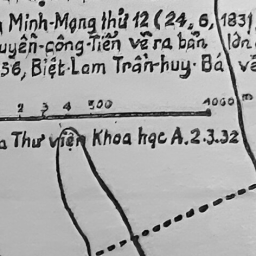 Minh-Mạng thứ 12 (24, 6, 1831
uyễn-công-Tiến vẽ ra bản, lớn
56, Biệt-Lam Trần-huy-Bá vẽ
2 3 4 500 1000 m
Thư viện Khoa học A.2.3.32